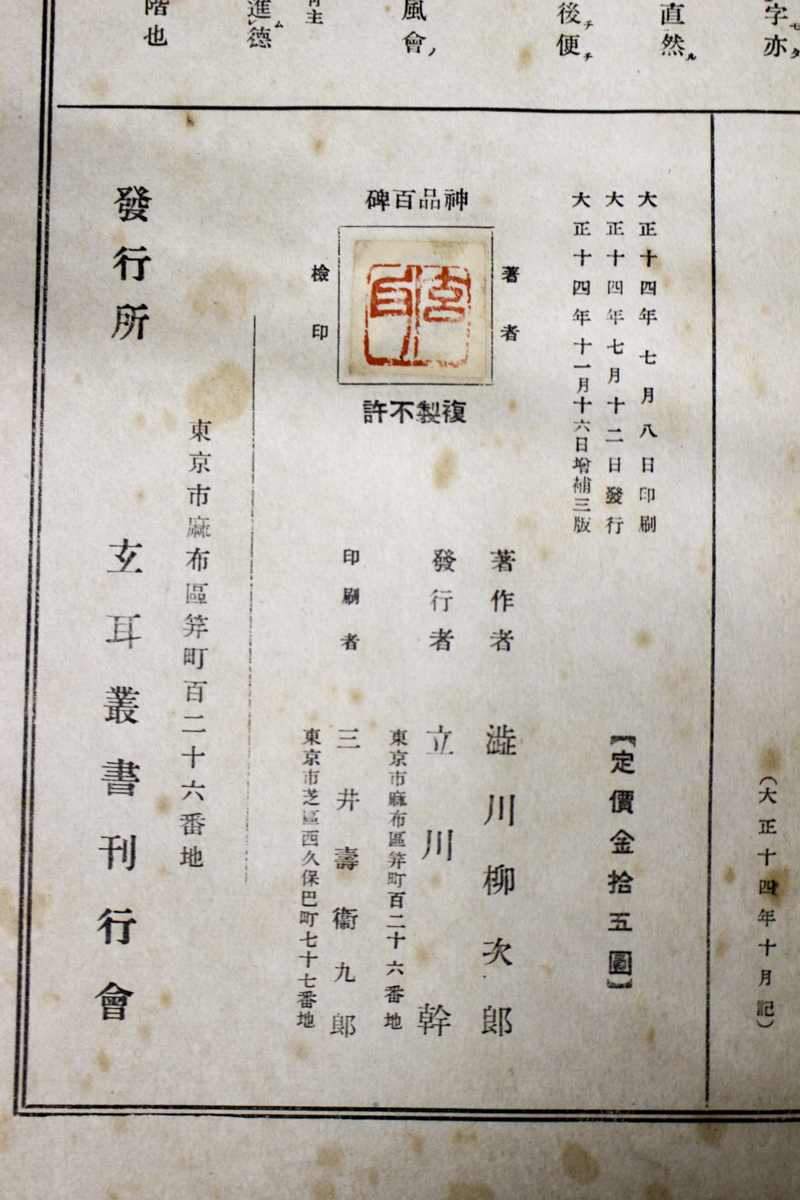 字亦
セタ
直然
ル
後便
チチ
風會
ノ
進德
ム
階也
(大正十四年十月記)
大正十四年七月八日印刷
大正十四年七月十二日發行
大正十四年十一月十六日增補三版
【定價金拾五圓】
神品百碑
著者
檢印
複製不許
著作者 澁川柳次郎
發行者 立川幹
東京市麻布區笄町百二十六番地
印刷者 三井壽衞九郎
東京市芝區西久保巴町七十七番地
東京市麻布區笄町百二十六番地
發行所 玄耳叢書刊行會